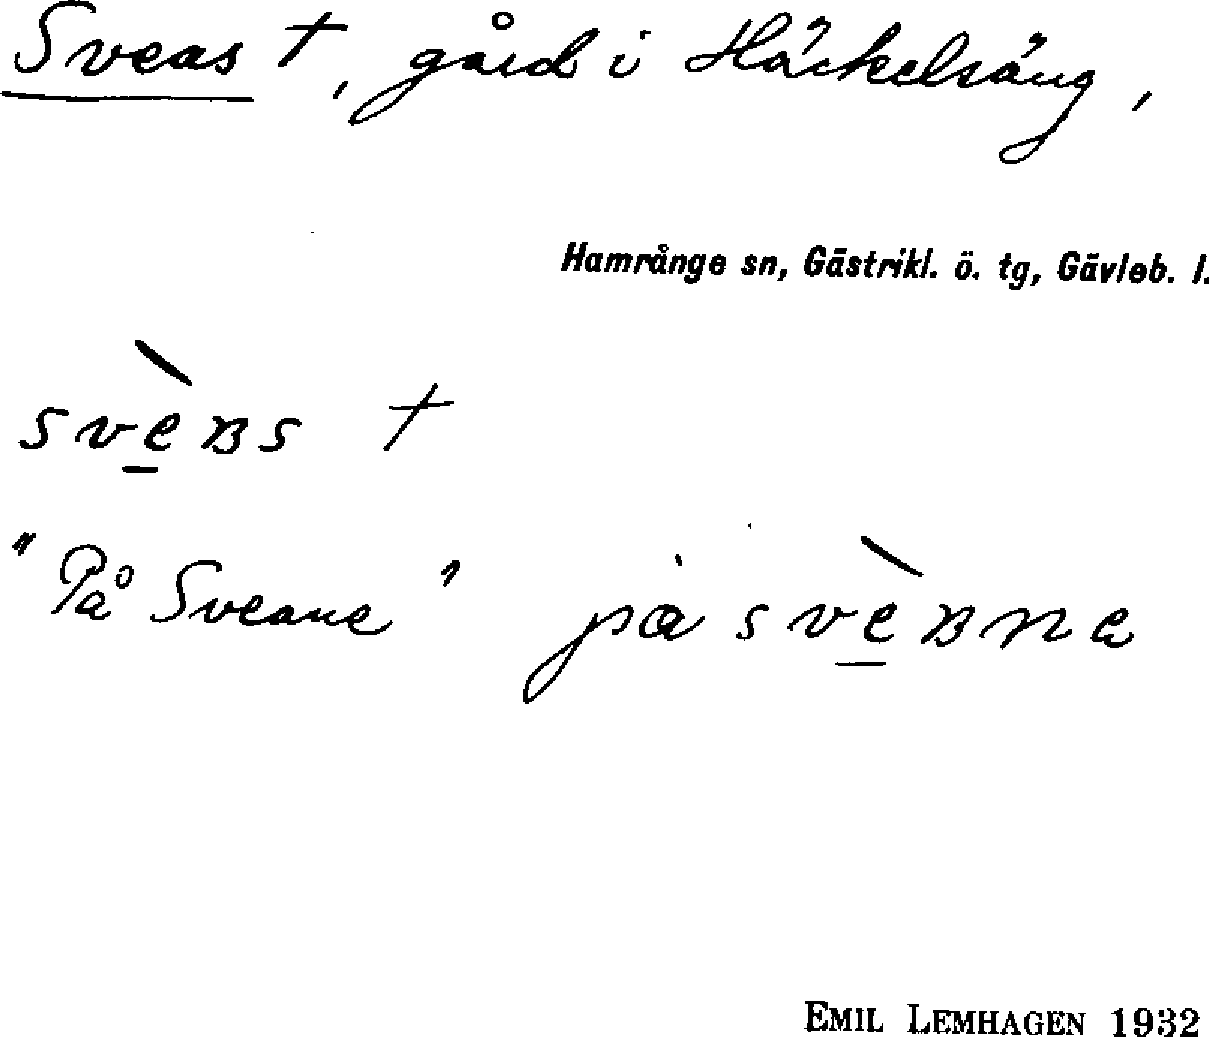 Sveas †, gård i Häckelsäng,
Hamrånge sn, Gästrikl. ö. tg, Gävleb. l.
†
"På Sveane"
EMIL LEMHAGEN 1932